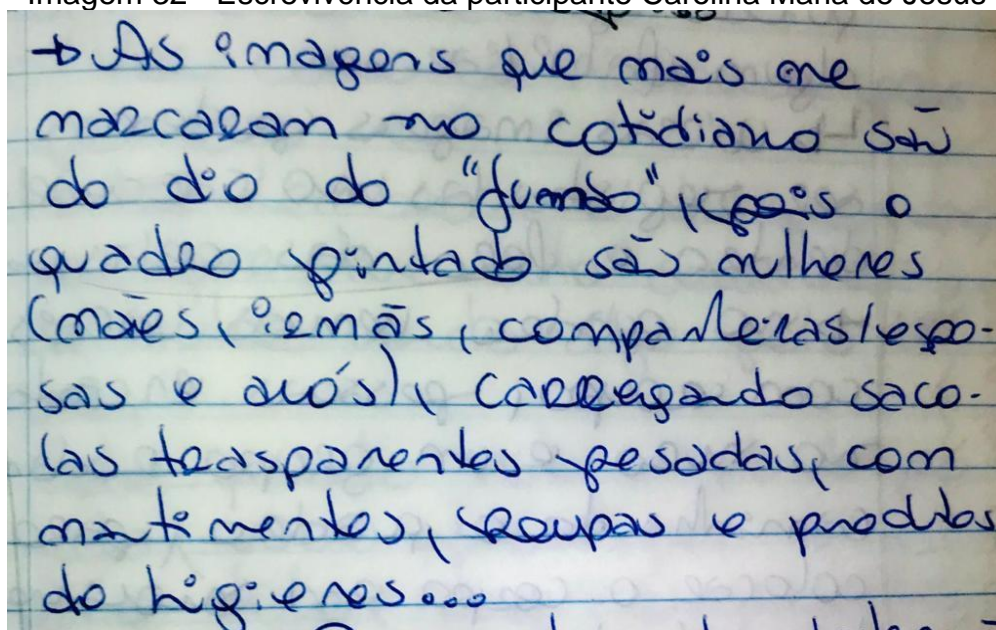 Imagem 32 - Escrevivência da participante Carolina Maria de Jesus
→ As imagens que mais me
marcaram no cotidiano são
do dia do "jumbo", pois o
quadro pintado são mulheres
(mães, irmãs, companheiras/espo-
sas e avós), carregando saco-
las trasparentes pesadas, com
mantimentos, roupas e produtos
de higienes...